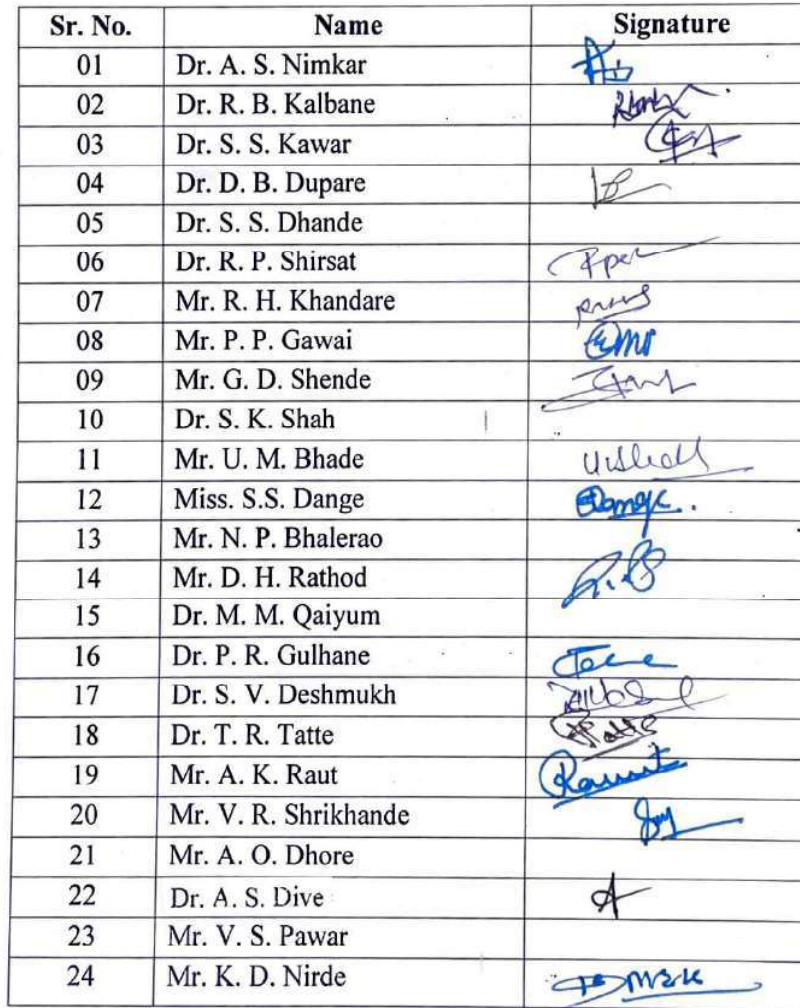 Sr. No. Name Signature
01 Dr. A. S. Nimkar
02 Dr. R. B. Kalbane
03 Dr. S. S. Kawar
04 Dr. D. B. Dupare
05 Dr. S. S. Dhande
06 Dr. R. P. Shirsat
07 Mr. R. H. Khandare
08 Mr. P. P. Gawai
09 Mr. G. D. Shende
10 Dr. S. K. Shah
11 Mr. U. M. Bhade
12 Miss. S.S. Dange
13 Mr. N. P. Bhalerao
14 Mr. D. H. Rathod
15 Dr. M. M. Qaiyum
16 Dr. P. R. Gulhane
17 Dr. S. V. Deshmukh
18 Dr. T. R. Tatte
19 Mr. A. K. Raut
20 Mr. V. R. Shrikhande
21 Mr. A. O. Dhore
22 Dr. A. S. Dive
23 Mr. V. S. Pawar
24 Mr. K. D. Nirde